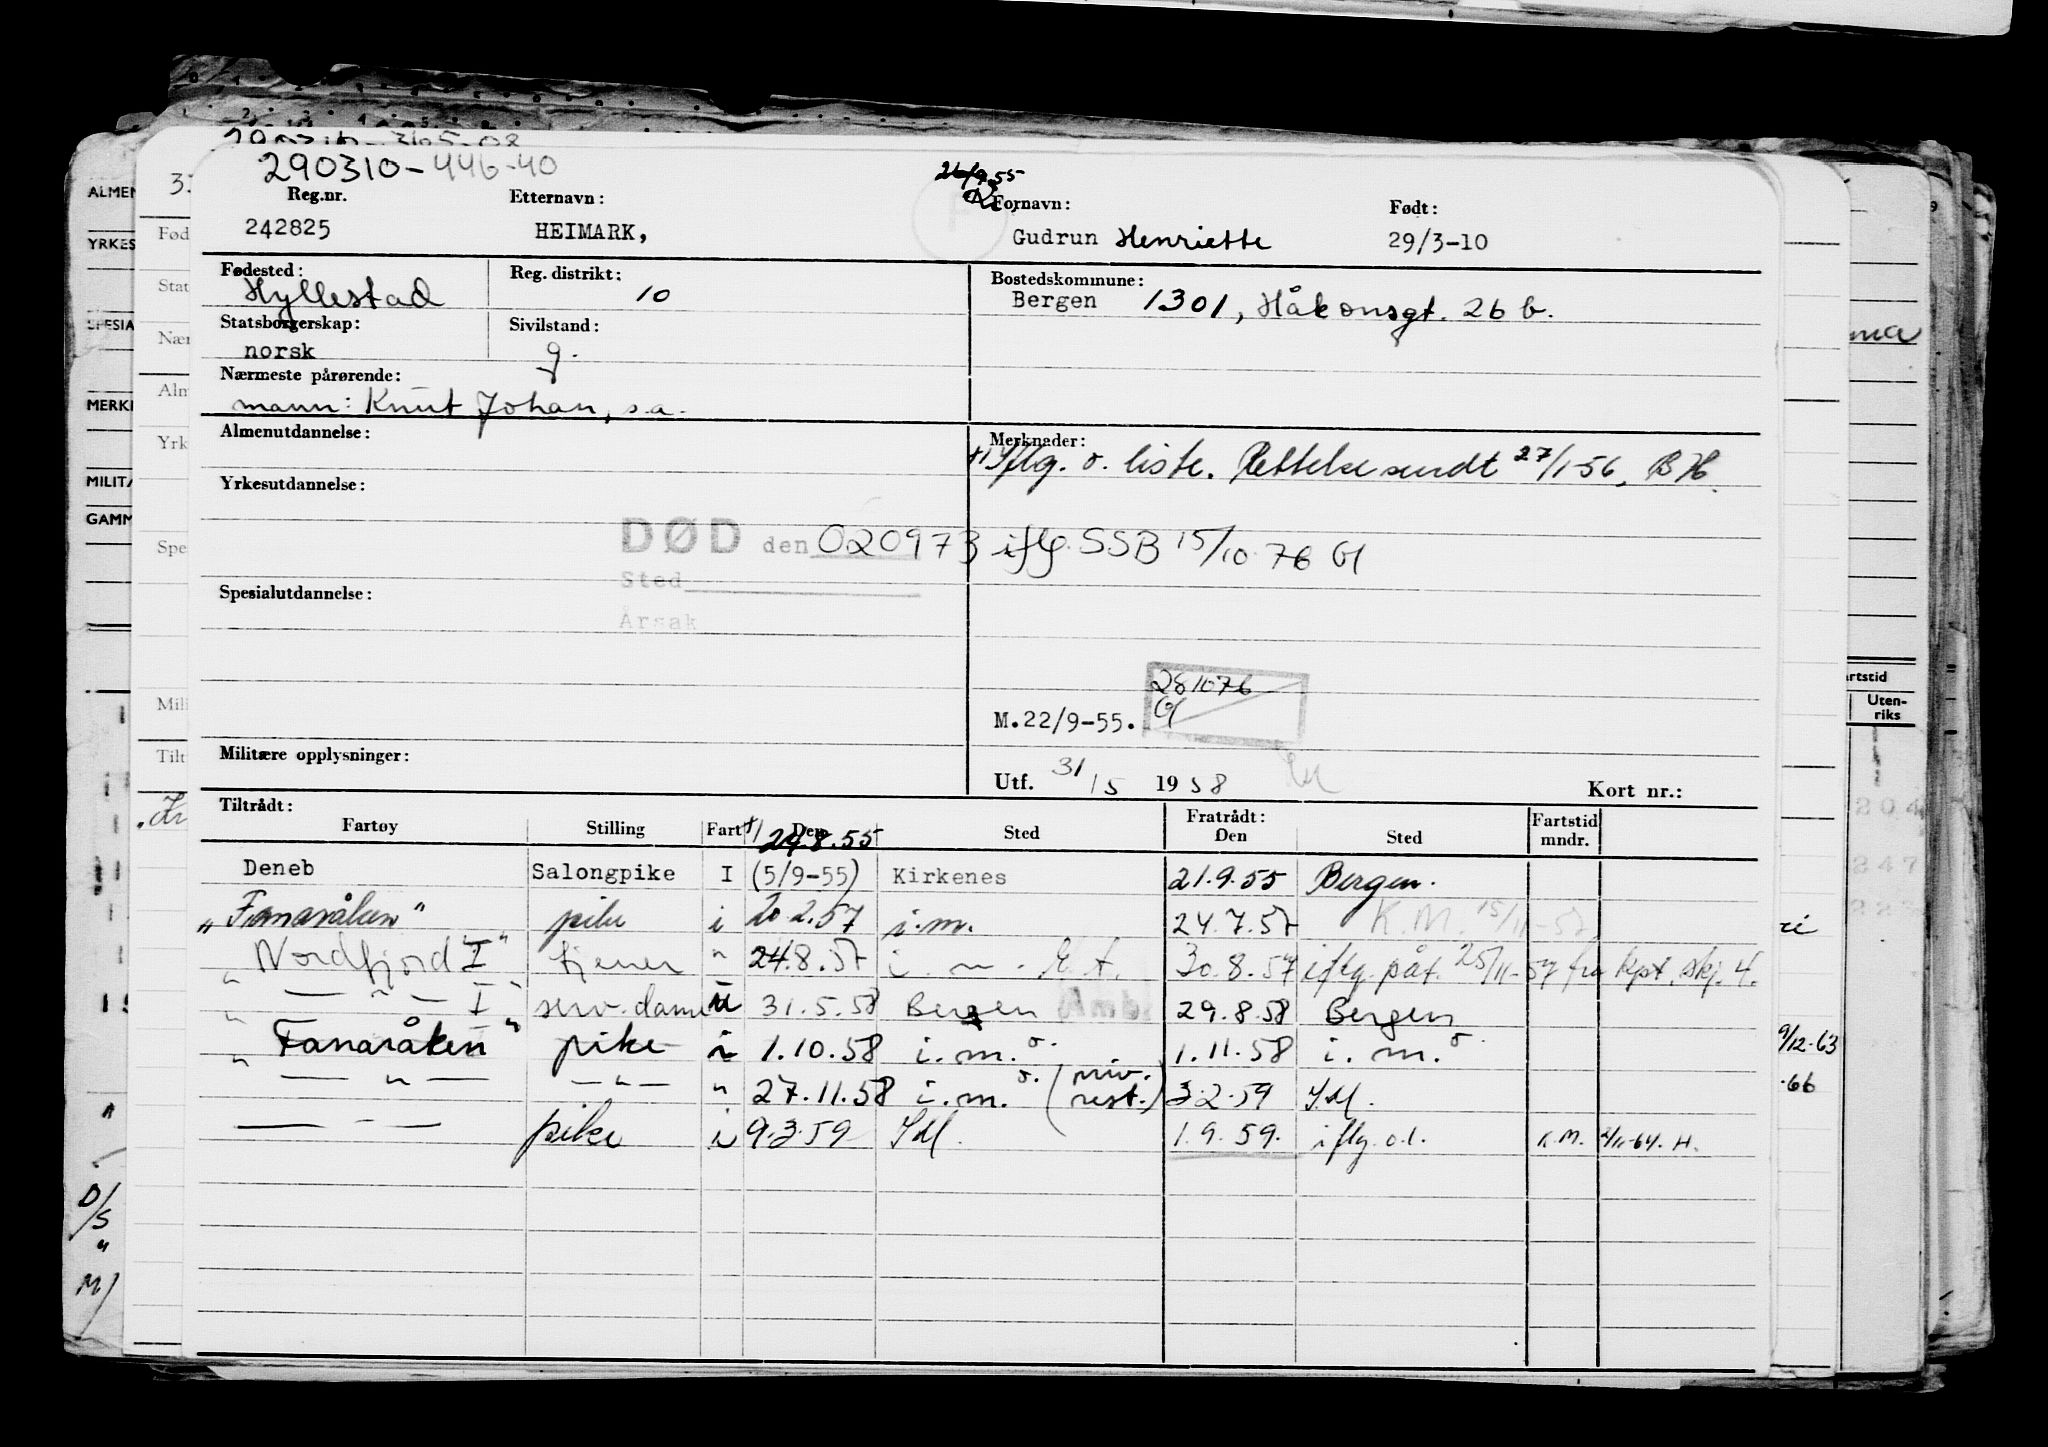 290310-446-40
26/9.55
Reg.nr. Etternavn: Fornavn: Født:
242825 HEIMARK, Gudrun Henriette 29/3-10
Fødested: Reg. distrikt: Bostedskommune:
Hyllestad 10 Bergen 1301, Håkonsgt. 26 b.
Statsborgerskap: Sivilstand:
norsk g.
Nærmeste pårørende:
mann: Knut Johan, s.a.
Almenutdannelse: Merknader:
+) iflg. o. liste. Rettelse sendt 27/1-56, BH.
Yrkesutdannelse:
DØD den 020973 iflg. SSB 15/10 76 Gl
Sted
Spesialutdannelse:
Årsak
281076
Gl
M.22/9-55.
Militære opplysninger:
Utf. 31/5 1958 Kort nr.:
Tiltrådt: Fratrådt:
Fartøy Stilling Fart Den Sted Den Sted Fartstid mndr.
+) 29.8.55
Deneb Salongpike I (5/9-55) Kirkenes 21.9.55 Bergen.
"Fanaråken" pike i 20.2.57 i.m. 24.7.57 K.M. 15/11-57
"Nordfjord I" tjener " 24.8.57 i.m. E.A. 30.8.57 iflg. påt. 25/11-57 fra kpt. skj. 4.
" — " — I" serv.dame u 31.5.58 Bergen Amb 29.8.58 Bergen
"Fanaråken" pike i 1.10.58 i.m.o. 1.11.58 i.m.o
" — " — — " — " 27.11.58 i.m.o. (niv. rest.) 3.2.59 I.M.
— - — pike i 9.3.59 I.M. 1.9.59. iflg.o.l. K.M. 2/11-64. H.
ALMEN
YRKES
SPESIA
MERK
MILITÆ
GAMM
Fød
Stat
Nær
Alm
Yrk
Spe
Mili
Tilt
D/S
"
M/
rtstid
Uten-
riks
204
247
9/12-63
.66